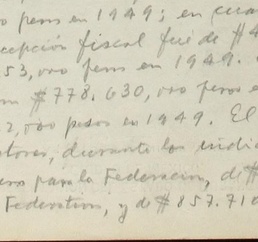 pesos en 1949; en cuan
cepción fiscal fué de #4
53,000 pesos en 1949.
#778.630,000 pesos e
2,000 pesos en 1949. El
tores, durante los indic
para la Federación, de #
Federation, y de #857.710